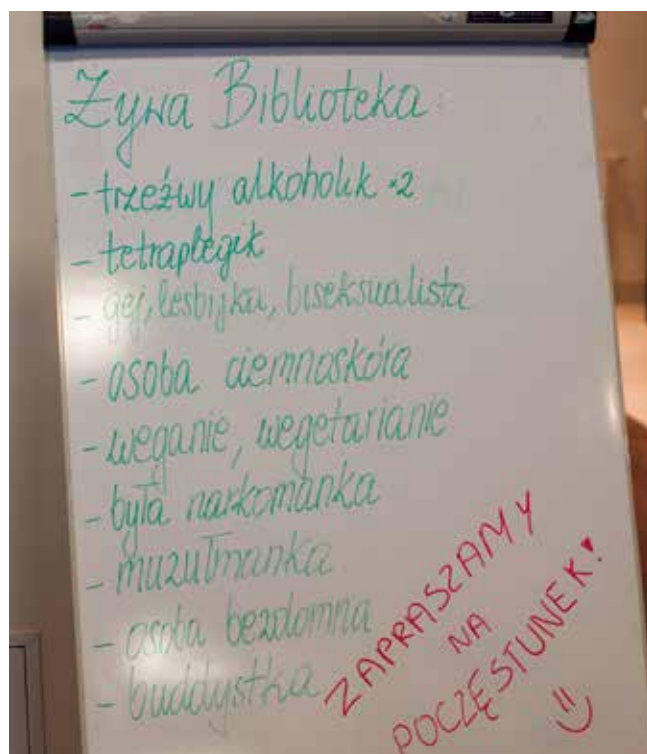 Żywa Biblioteka:
- trzeźwy alkoholik ×2
- tetraplegik
- gej, lesbijka, biseksualista
- osoba ciemnoskóra
- weganie, wegetarianie
- była narkomanka
- muzułmanka
- osoba bezdomna
- buddystka
ZAPRASZAMY
NA
POCZĘSTUNEK!